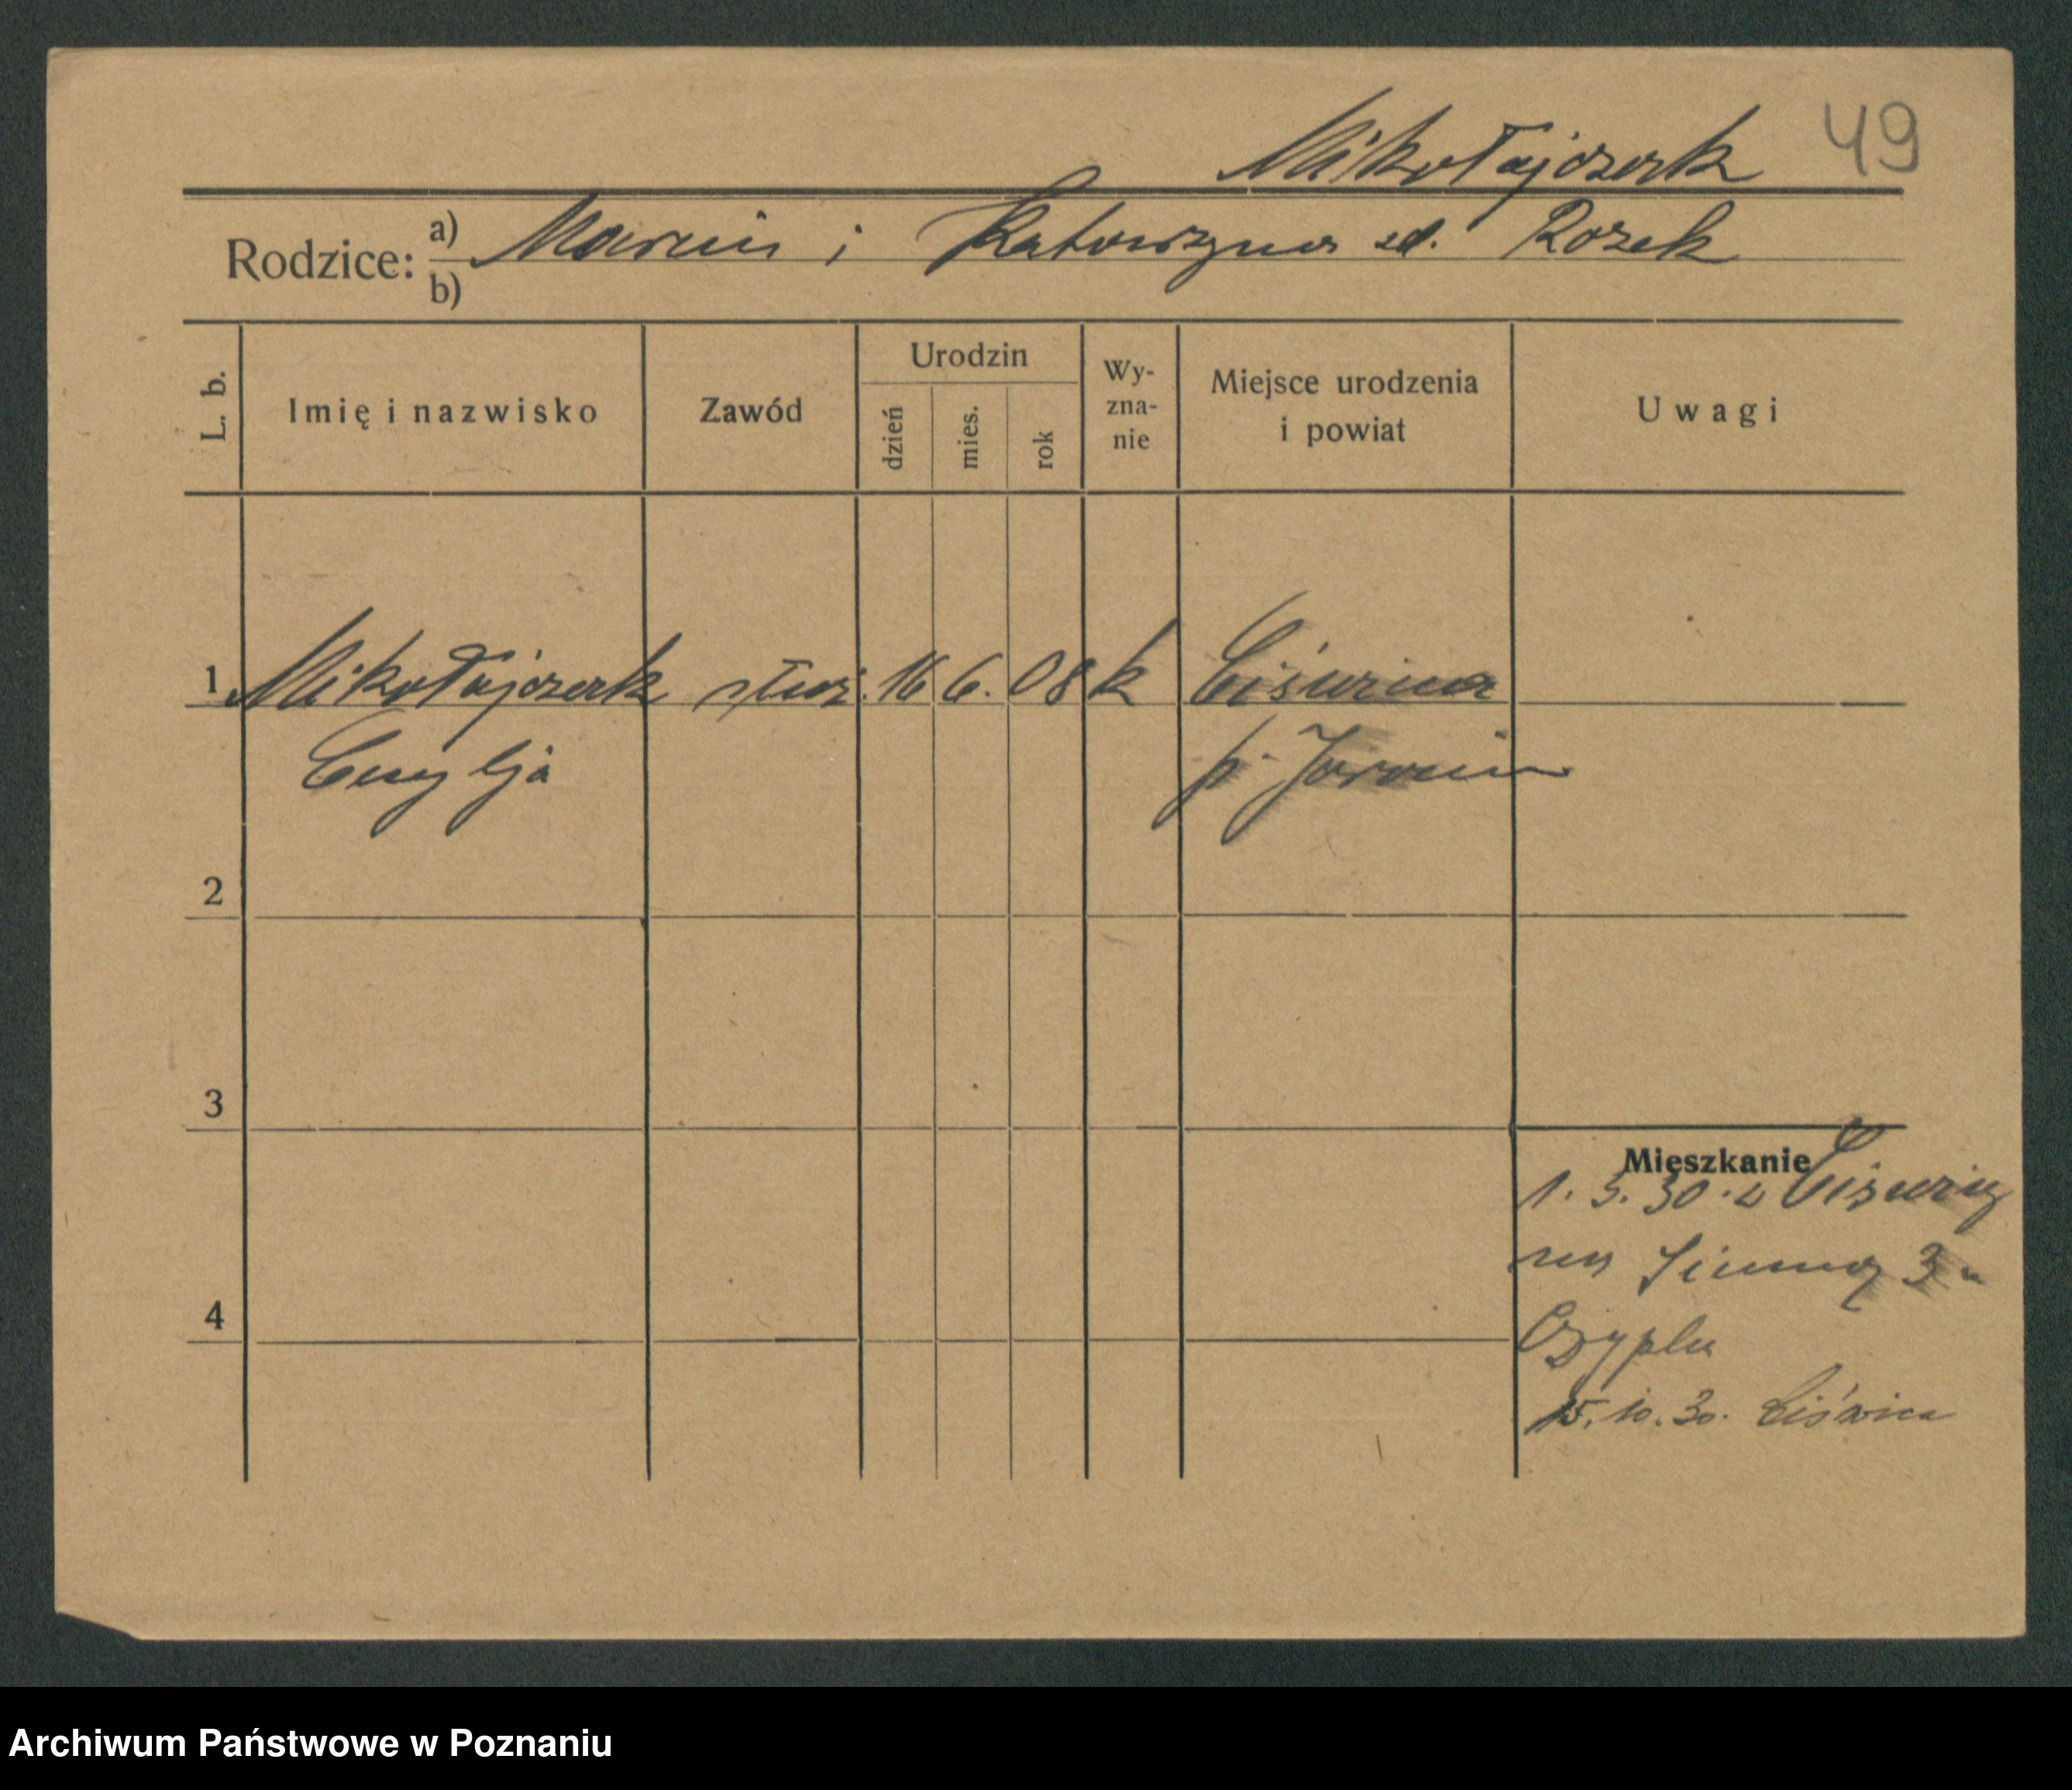 Mikołajczak 49
Rodzice: a) Marcin i Katarzyna zd. Rozek
b)
L. b. Imię i nazwisko Zawód Urodzin dzień mies. rok Wy- zna- nie Miejsce urodzenia i powiat Uwagi
1 Mikołajczak służ. 16 6. 08 k Ciświca
Cecylja p. Jarocin
2
3
Mieszkanie
1. 5. 30. z Ciświcy
na Zimną 3 u
4
Czypla
15. 10. 30. Ciświca
Archiwum Państwowe w Poznaniu